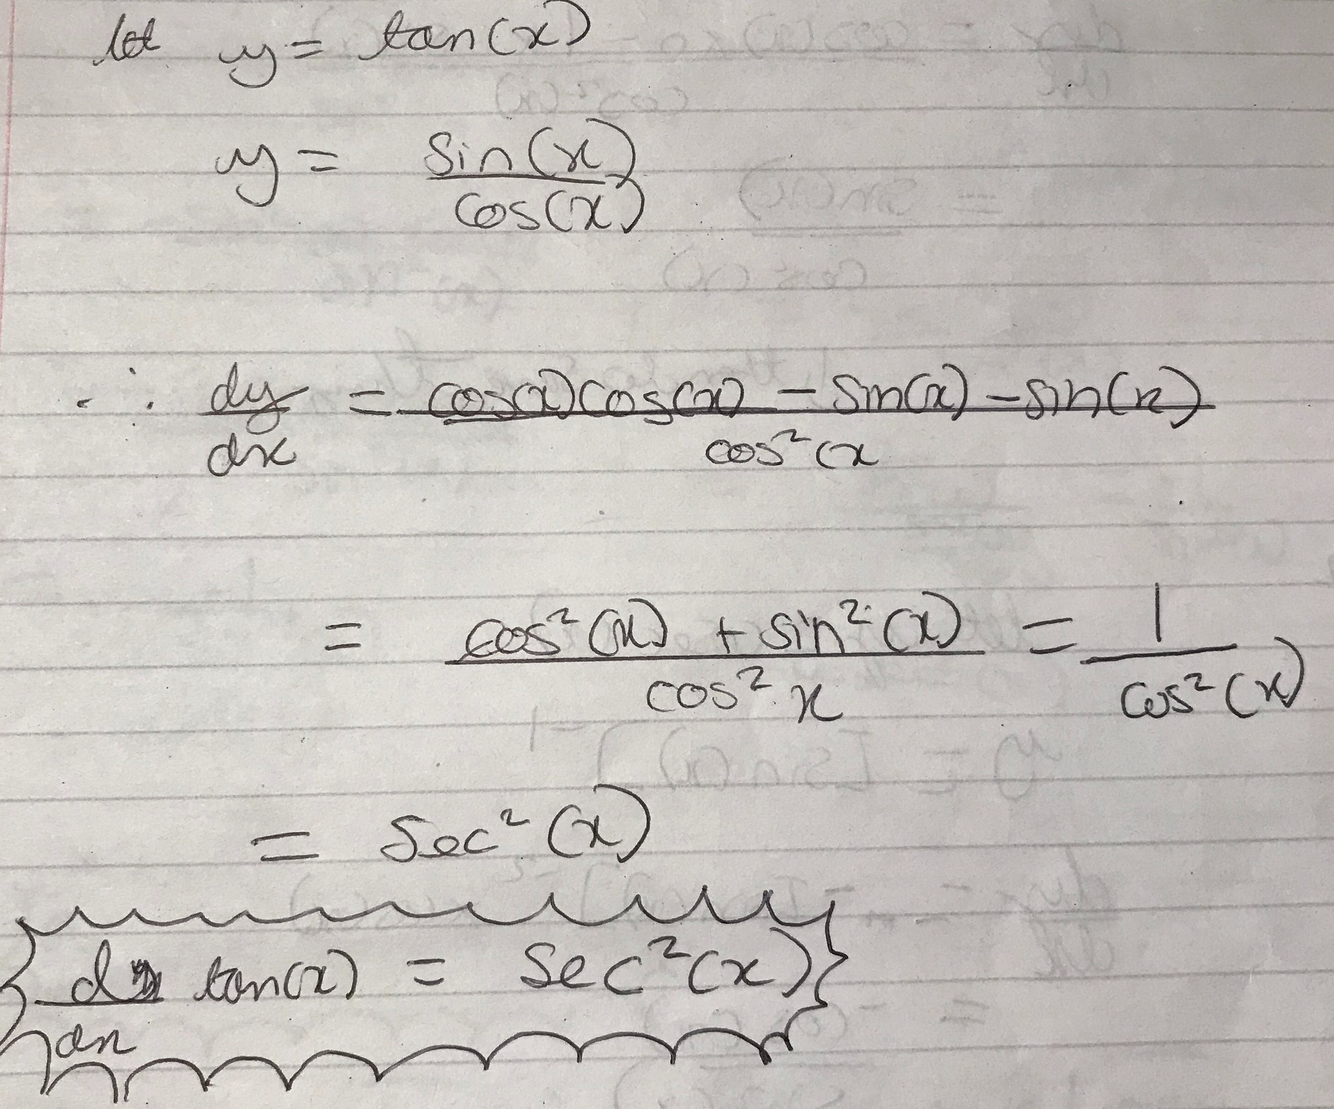 let y = tan(x)
y = sin(x)/cos(x)
∴ dy/dx = cos(x)cos(x) - sin(x) - sin(x)/cos²(x
= cos²(x) + sin²(x)/cos² x = 1/cos²(x)
= sec²(x)
d/dx tan(x) = sec²(x)